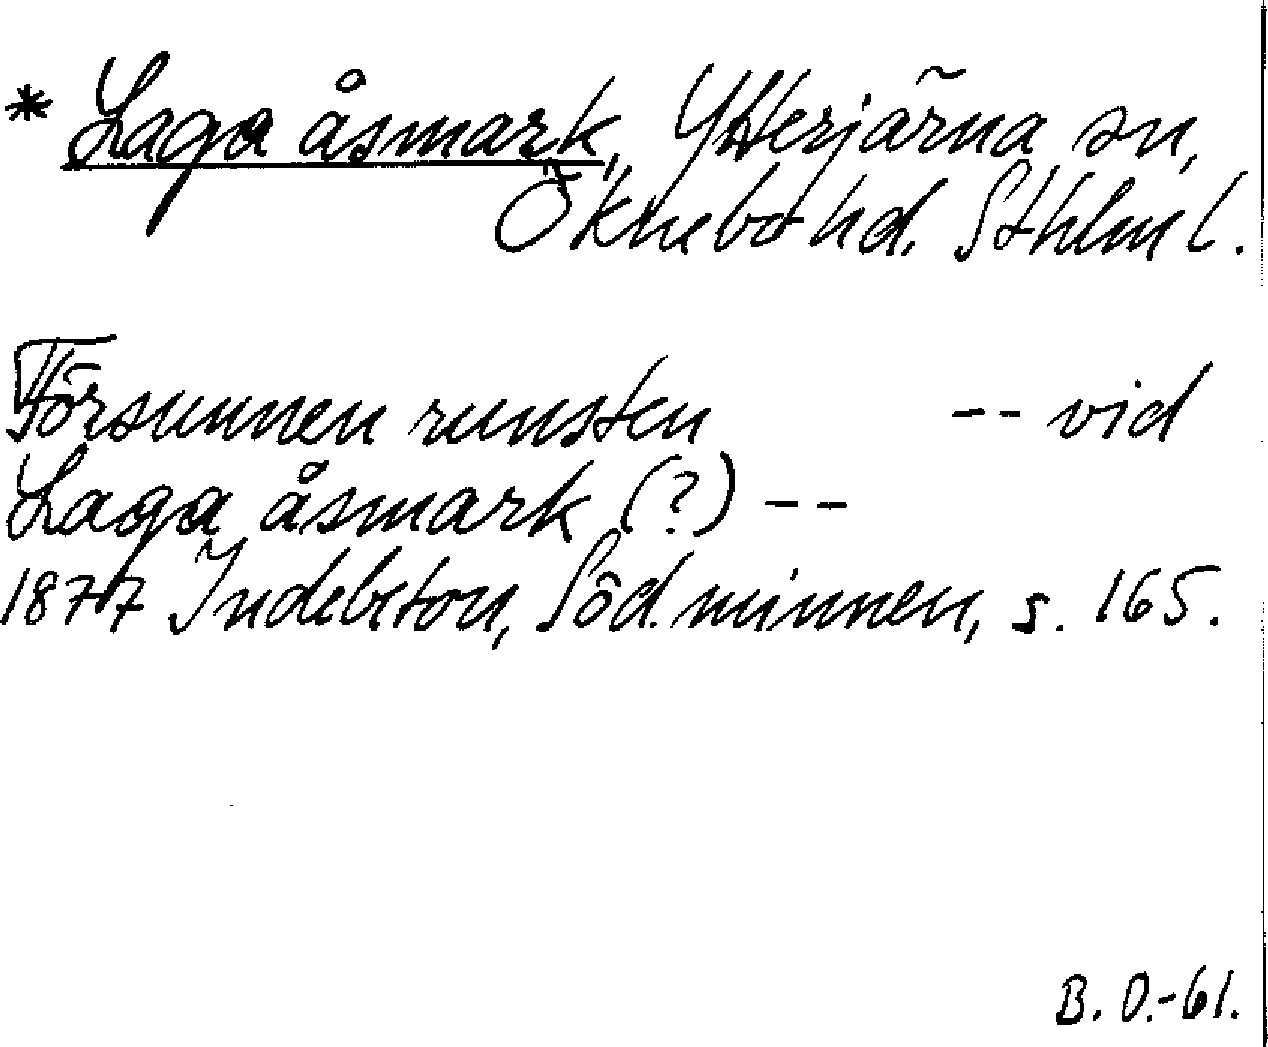 * Laga åsmark, Ytterjärna sn,
Öknebo hd. Sthlm l.
Försunnen runsten -- vid
Laga åsmark (?) --
1877 Indebetou, Söd. minnen, s. 165.
B. O.-61.